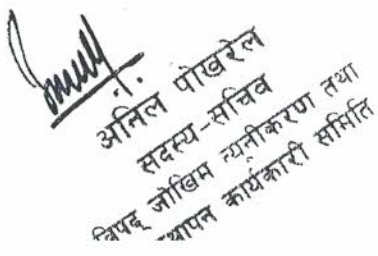 अनिल पोखरेल
सदस्य-सचिव
विपद् जोखिम न्यूनीकरण तथा
कार्यकारी समिति